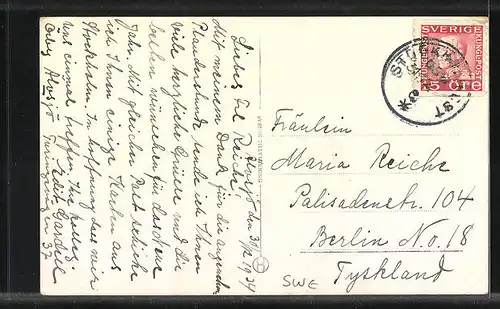 Älvsjö den 31/12 1934
Liebes Frl Reiche!
Mit meinem Dank für die angenehm
Plauderstunde sende ich Ihnen
viele herzliche Grüsse und die
besten wünschen für das neue
Jahr. Mit gleichen Post schicke
ich Ihnen einige Karten aus
Stockholm. In hoffnung dass wir
uns einmal treffen. Ihr
Edit Gardell
Älvsjö
37
SVERIGE
15 ÖRE
Fräulein
Maria Reiche
Palisadenstr. 104
Berlin N.o.18
Tyskland
SWE